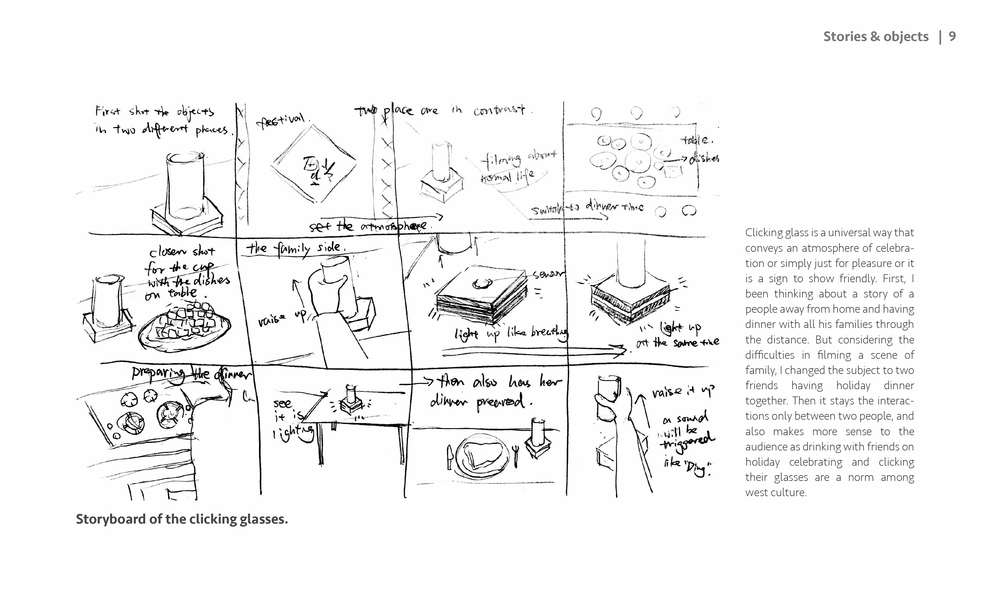 Stories & objects | 9
First shot the objects
in two different places.
festival.
two place are in contrast.
filming about
normal life
table.
dishes
set the atmosphere.
switch to dinner time
closer shot
for the cup
with the dishes
on table.
the family side.
raise up
sensor
light up like breathing
light up
at the same time
preparing the dinner
see
it is
lighting
then also has her
dinner prepared.
raise it up
a sound
will be
triggered
like "Ding".
Clicking glass is a universal way that
conveys an atmosphere of celebra-
tion or simply just for pleasure or it
is a sign to show friendly. First, I
been thinking about a story of a
people away from home and having
dinner with all his families through
the distance. But considering the
difficulties in filming a scene of
family, I changed the subject to two
friends having holiday dinner
together. Then it stays the interac-
tions only between two people, and
also makes more sense to the
audience as drinking with friends on
holiday celebrating and clicking
their glasses are a norm among
west culture.
Storyboard of the clicking glasses.